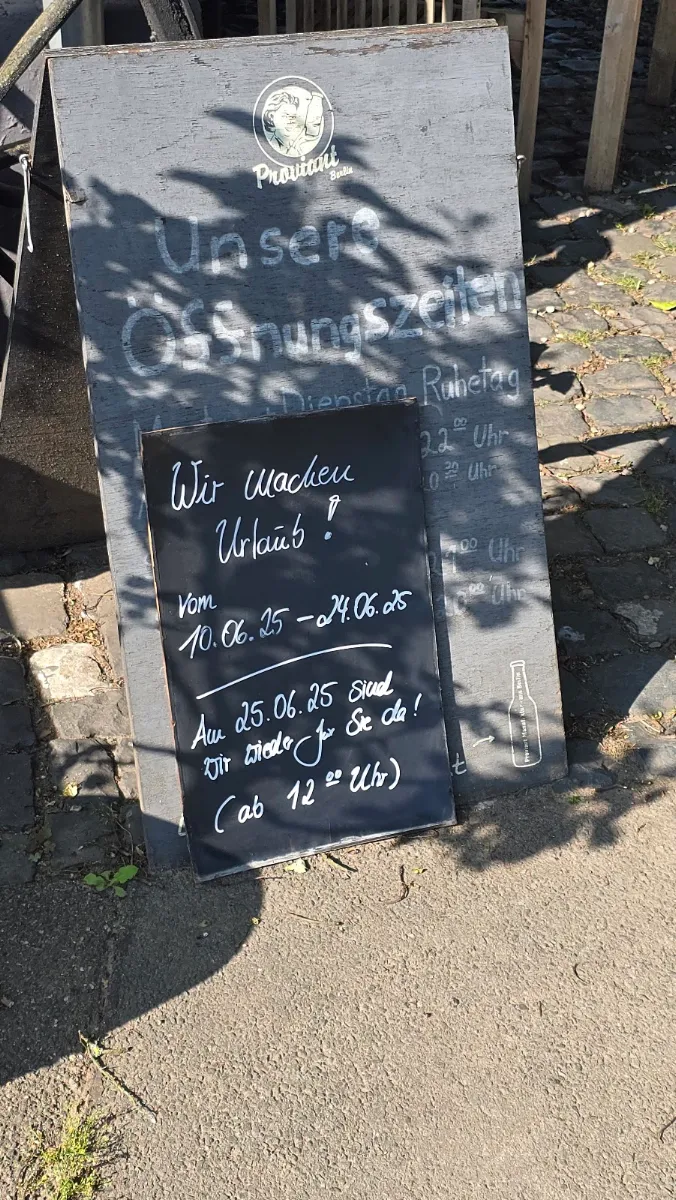 Proviant
Berlin
Unsere
Öffnungszeiten
Dienstag Ruhetag
22 00 Uhr
Uhr
00 Uhr
00 Uhr
Wir machen
Urlaub!
vom
10.06.25 – 24.06.25
Am 25.06.25 sind
wir wieder für Sie da!
(ab 12 00 Uhr)